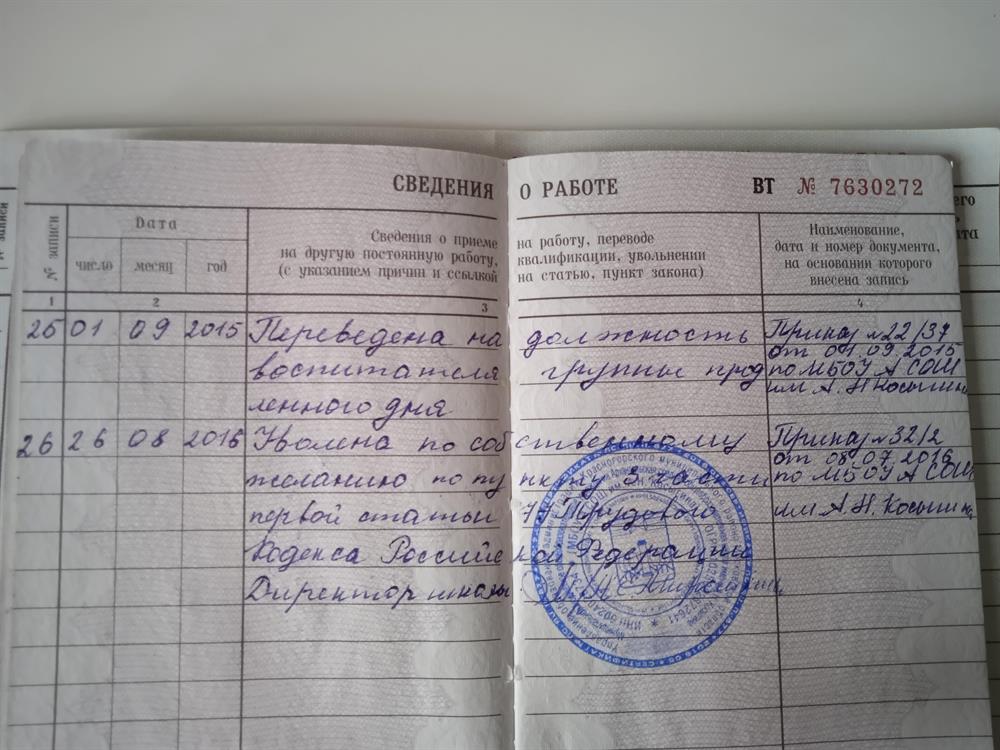 СВЕДЕНИЯ О РАБОТЕ ВТ № 7630272
№ записи
Дата
число месяц год
Сведения о приеме на работу, переводе
на другую постоянную работу, квалификации, увольнении
(с указанием причин и ссылкой на статью, пункт закона)
Наименование,
дата и номер документа,
на основании которого
внесена запись
1 2 3 4
25 01 09 2015 Переведена на должность Приказ №22/37
от 01.09.2015
воспитателя группы прод по МБОУ АСОШ
им А.Н Косыгина
ленного дня
26 26 08 2016 Уволена по собственному Приказ №32/2
от 08.07.2016
желанию по пункту 3 части по МБОУ АСОШ
первой статьи Трудового им А.Н. Косыгина
Кодекса Российской Федерации
Директор школы